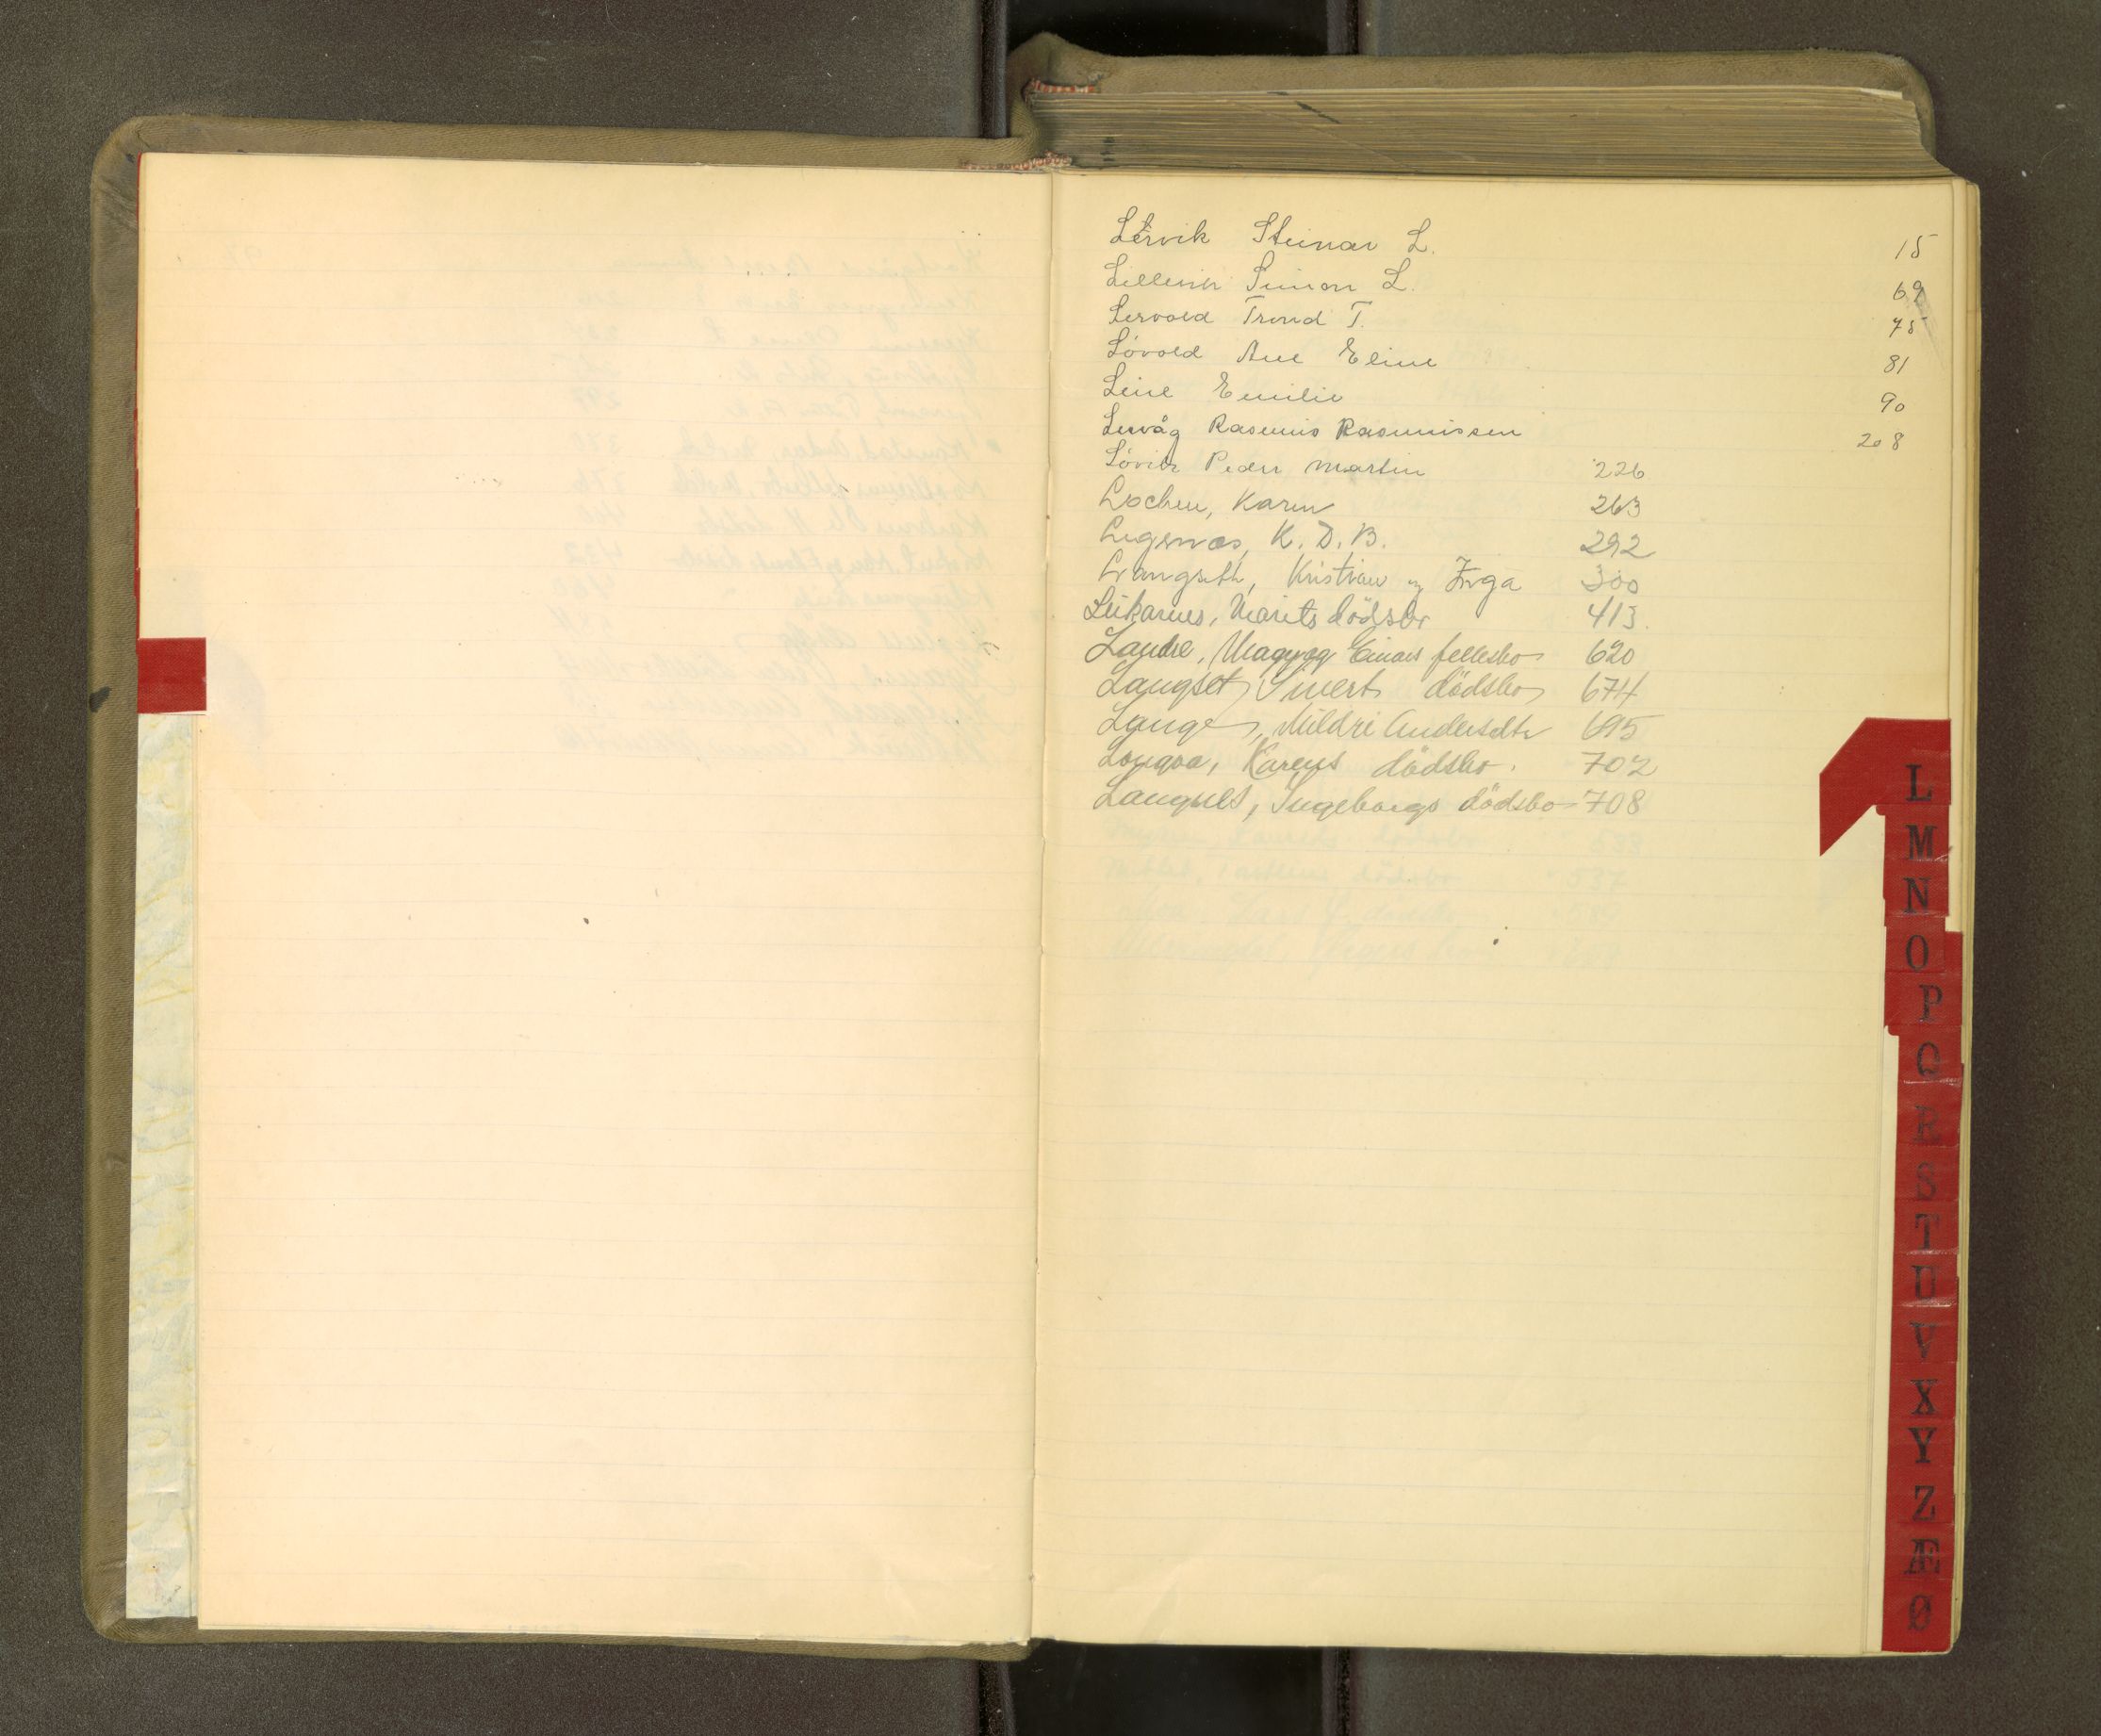 Lervik Steinar L. 15
Lillevik Simon L. 69
Lervold Trond T. 75
Lövold Ane Eline 81
Leine Emilie 90
Lervåg Rasmus Rasmussen 208
Lövik Peder Martin 226
Lochen, Karen 263
K. D. B. 292
Langseth, Kristian og Inga 300
Leikarnes, Marits dödsbo 413
Lande, Mag og Einars fellesbo 620
Langset, Sivert dödsbo 674
Lange, Mildri Andersdtr 695
Longva, Karens dödsbo. 702
Langset, Ingeborgs dödsbo 708
L
M
N
O
P
Q
R
S
T
U
V
X
Y
Z
Æ
Ø